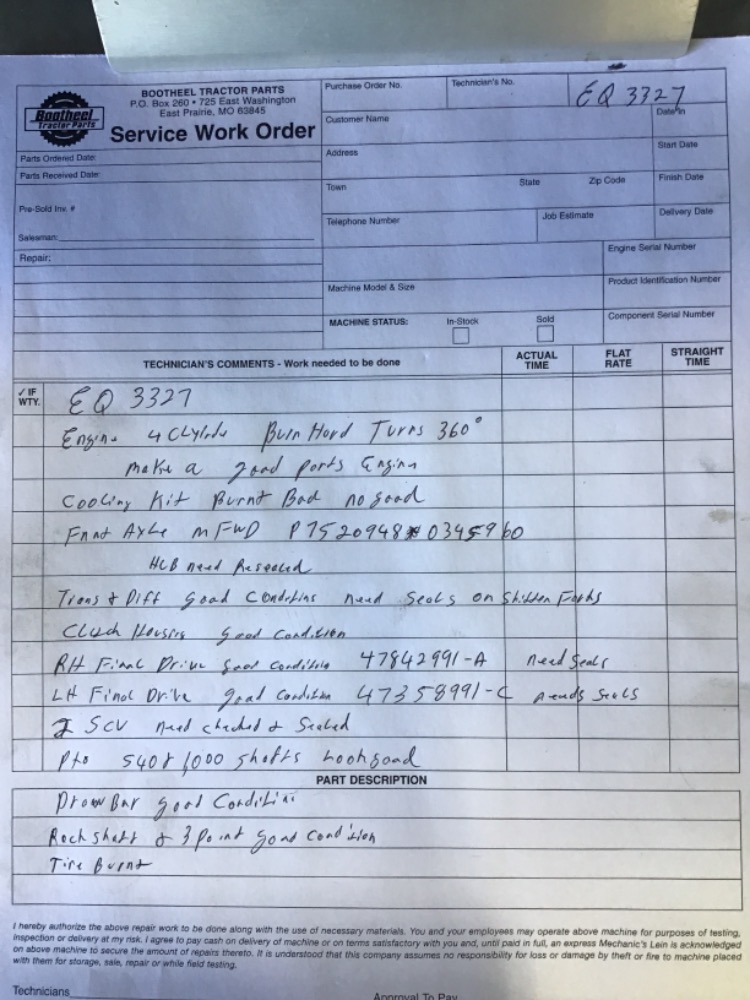 Bootheel
Tractor Parts
BOOTHEEL TRACTOR PARTS
P.O. Box 260 • 725 East Washington
East Prairie, MO 63845
Service Work Order
Parts Ordered Date:
Parts Received Date:
Pre-Sold Inv. #
Salesman:
Repair:
Purchase Order No.
Technician's No.
EQ 3327
Date In
Customer Name
Address
Start Date
Town
State
Zip Code
Finish Date
Telephone Number
Job Estimate
Delivery Date
Engine Serial Number
Machine Model & Size
Product Identification Number
MACHINE STATUS:
In-Stock
Sold
Component Serial Number
TECHNICIAN'S COMMENTS - Work needed to be done
ACTUAL TIME
FLAT RATE
STRAIGHT TIME
✓ IF WTY.
EQ 3327
Engine 4 Burn Hard Turns 360°
make a good parts Engine
Cooling Kit Burnt Bad no good
Front Axle MFWD
need Resealed
Trans & Diff Good Condition need Seals on Forks
Clutch Housing good condition
RH Final Drive Good condition 47842991-A need Seals
LH Final Drive good condition 47358991-C needs Seals
2 SCV need checked & Sealed
Pto 540 & 1000 shafts look good
PART DESCRIPTION
Draw Bar good Condition
Rock shaft & 3 Point good condition
Tire Burnt
I hereby authorize the above repair work to be done along with the use of necessary materials. You and your employees may operate above machine for purposes of testing,
inspection or delivery at my risk. I agree to pay cash on delivery of machine or on terms satisfactory with you and, until paid in full, an express Mechanic's Lein is acknowledged
on above machine to secure the amount of repairs thereto. It is understood that this company assumes no responsibility for loss or damage by theft or fire to machine placed
with them for storage, sale, repair or while field testing.
Technicians
Approval To Pay